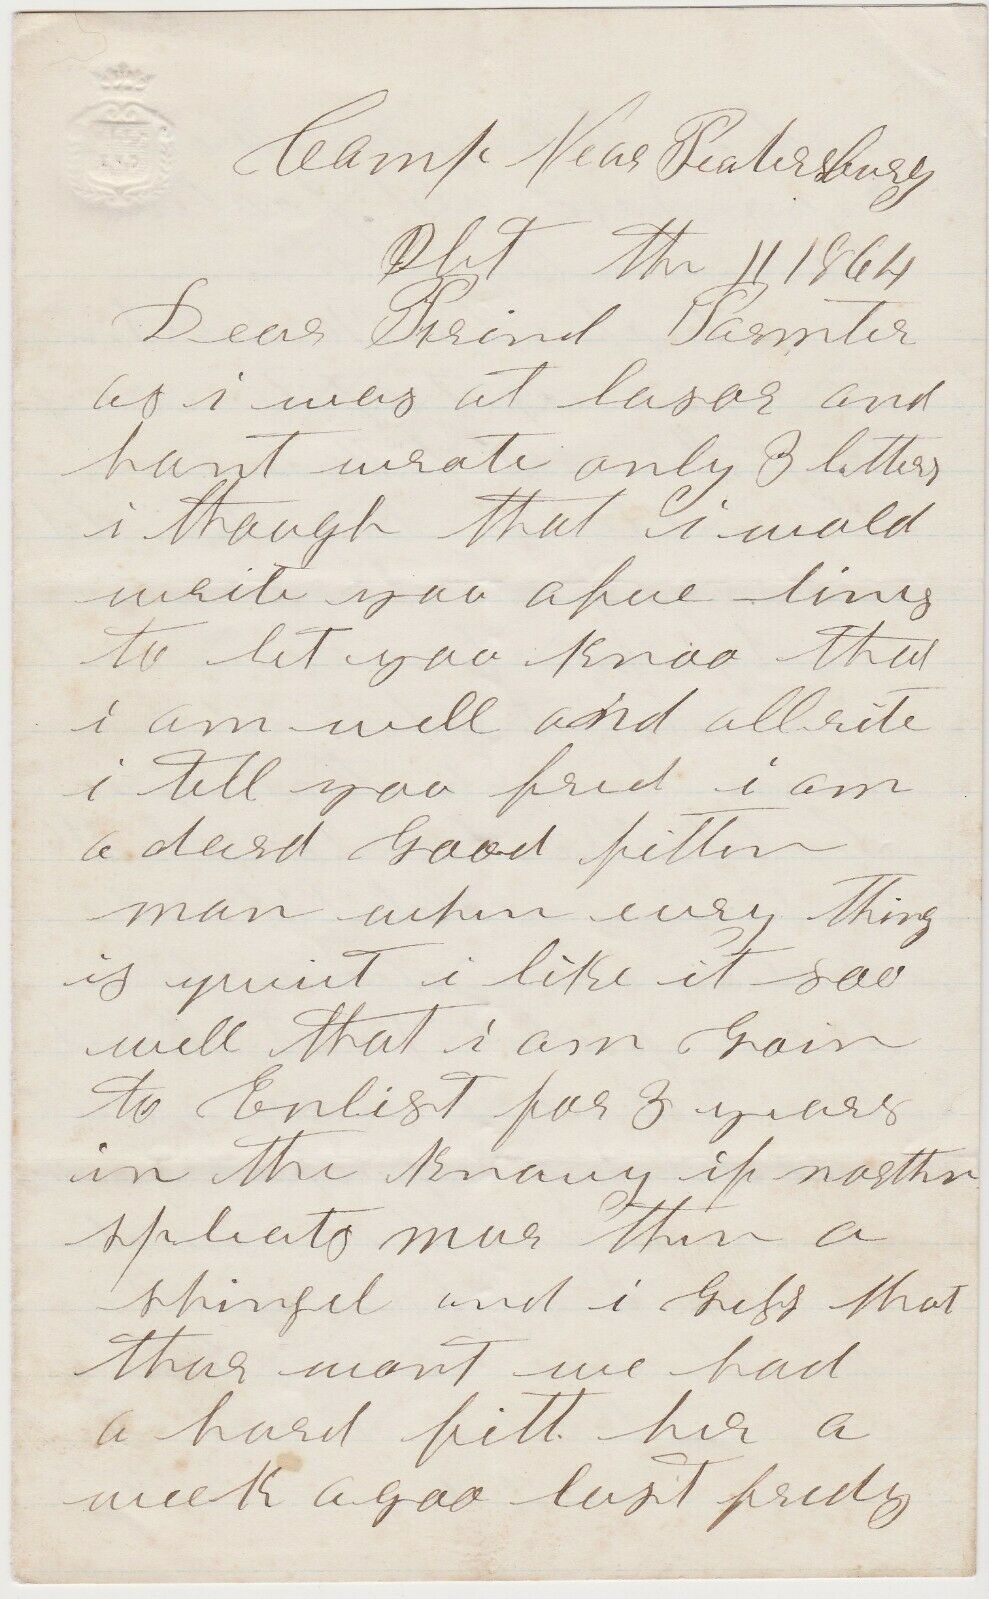 Camp Near Peatersburg
Obt the 11 1864
Dear Freind Parmter
as i was at lasor and
hant wrate only 3 letters
i though that i wold
write yoo a fue lines
to let yoo knoo that
i am well and allrite
i tell yoo fred i am
a deard Good fitten
man when evry thing
is yuiet i like it soo
well that i am Goin
to Enlist for 3 years
in the Knavy if northn
spleats mor then a
shingel and i Gess that
thar wont we had
a hard fitt her a
week agoo last fredy